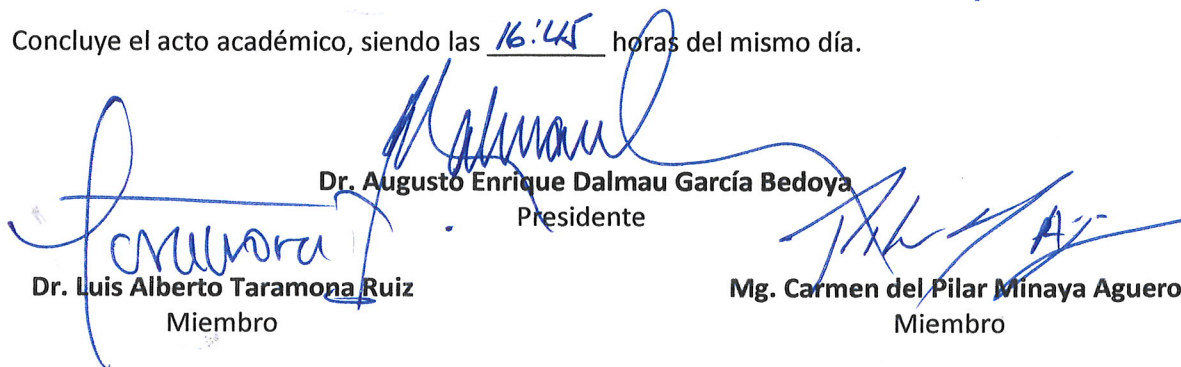 Concluye el acto académico, siendo las 16:45 horas del mismo día.
Dr. Augusto Enrique Dalmau García Bedoya
Presidente
Dr. Luis Alberto Taramona Ruiz
Miembro
Mg. Carmen del Pilar Minaya Aguero
Miembro